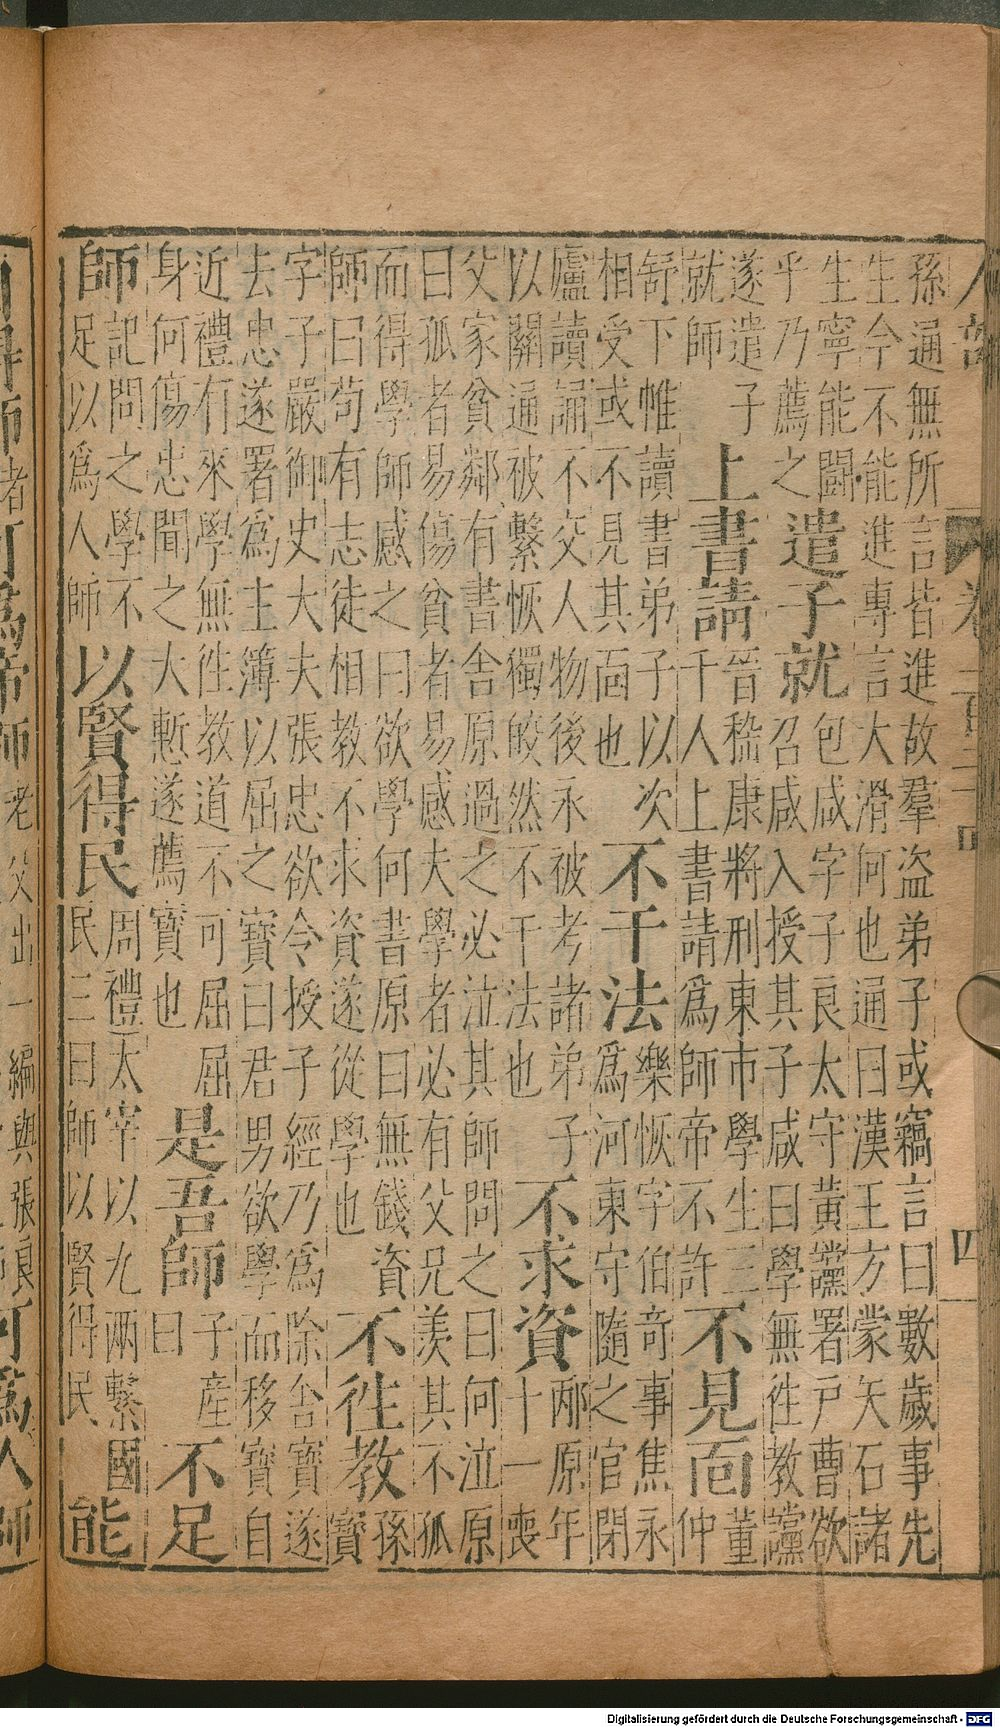 四
孫通無所言皆進故羣盗弟子或竊言曰數歲事先
生今不能進專言大滑何也通曰漢王方蒙矢石諸
生寧能鬭
乎乃薦之
遣子就
包咸字子良太守黃讜署户曹欲
召咸入授其子咸曰學無徃教讜
遂遣子
就師
上書請
晉嵇康將刑東市學生三
千人上書請爲師帝不許
不見面
董
仲
舒下帷讀書弟子以次
相受或不見其面也
不干法
樂恢字伯竒事焦永
爲河東守隨之官閉
廬讀誦不交人物後永被考諸弟子
以關通被繫恢獨皎然不干法也
不求資
邴原年
十一喪
父家貧鄰有書舍原過之必泣其師問之曰何泣原
曰孤者易傷貧者易感夫學者必有父兄羨其不孤
而得學師感之曰欲學何書原曰無錢資
師曰苟有志徒相教不求資遂從學也
不徃教
孫
寶
字子嚴御史大夫張忠欲令授子經乃爲除舍寶遂
去忠遂署爲主簿以屈之寶曰君男欲學而移寶自
近禮有來學無徃教道不可屈屈
身何傷忠聞之大慙遂薦寶也
是吾師
子產
曰
不足
師
記問之學不
足以爲人師
以賢得民
周禮太宰以九兩繫國
民三曰師以賢得民
能
師
者
可爲帝師
老父出一編與張良
可爲人師
Digitalisierung gefördert durch die Deutsche Forschungsgemeinschaft - DFG